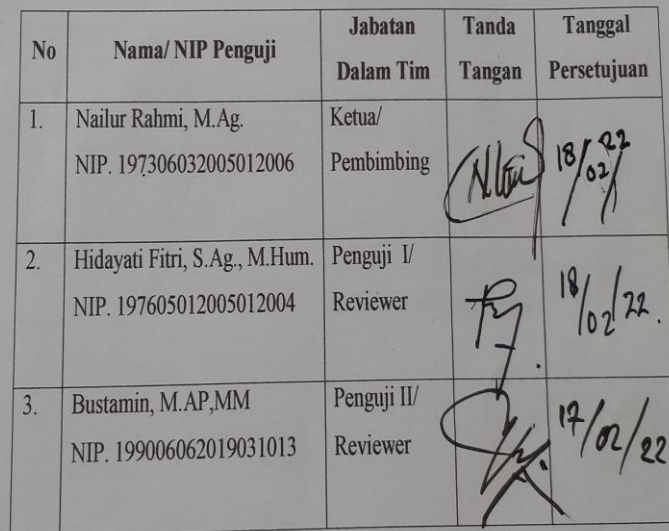 No
Nama/ NIP Penguji
Jabatan
Dalam Tim
Tanda
Tangan
Tanggal
Persetujuan
1.
Nailur Rahmi, M.Ag.
NIP. 197306032005012006
Ketua/
Pembimbing
18/02/22
2.
Hidayati Fitri, S.Ag., M.Hum.
NIP. 197605012005012004
Penguji I/
Reviewer
18/02/22.
3.
Bustamin, M.AP,MM
NIP. 199006062019031013
Penguji II/
Reviewer
17/02/22